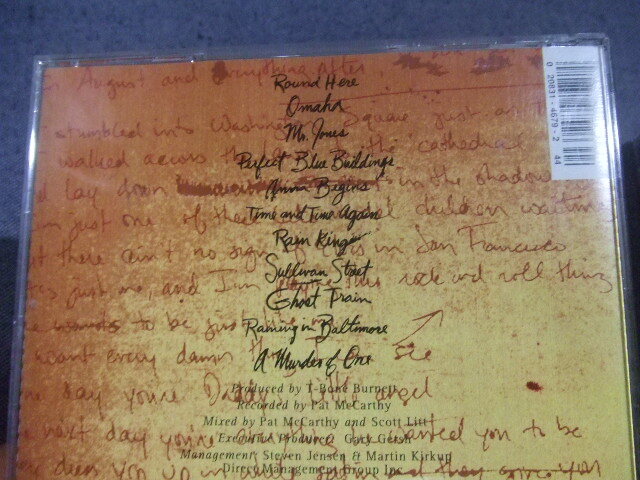 August and everything after
Round Here
Omaha
stumbled into Washington Square just as the
Mr. Jones
walked across the the cathedral
Perfect Blue Buildings
lay down in the shadow
Anna Begins
just one of these children waiting
Time and Time Again
Rain King
there ain't no sign of in San Francisco
Sullivan Street
just me, and I'm this rock and roll thing
Ghost Train
to be just
Raining in Baltimore
want every damn see
A Murder of One
day you're Daddy's little angel
Produced by T-Bone Burnett
Recorded by Pat McCarthy
Mixed by Pat McCarthy and Scott Litt
next day you're wanted you to be
Executive Producer: Gary Gersh
Management: Steven Jensen & Martin Kirkup
Direct Management Group Inc
you up in and they
0 20831-4679-2 44